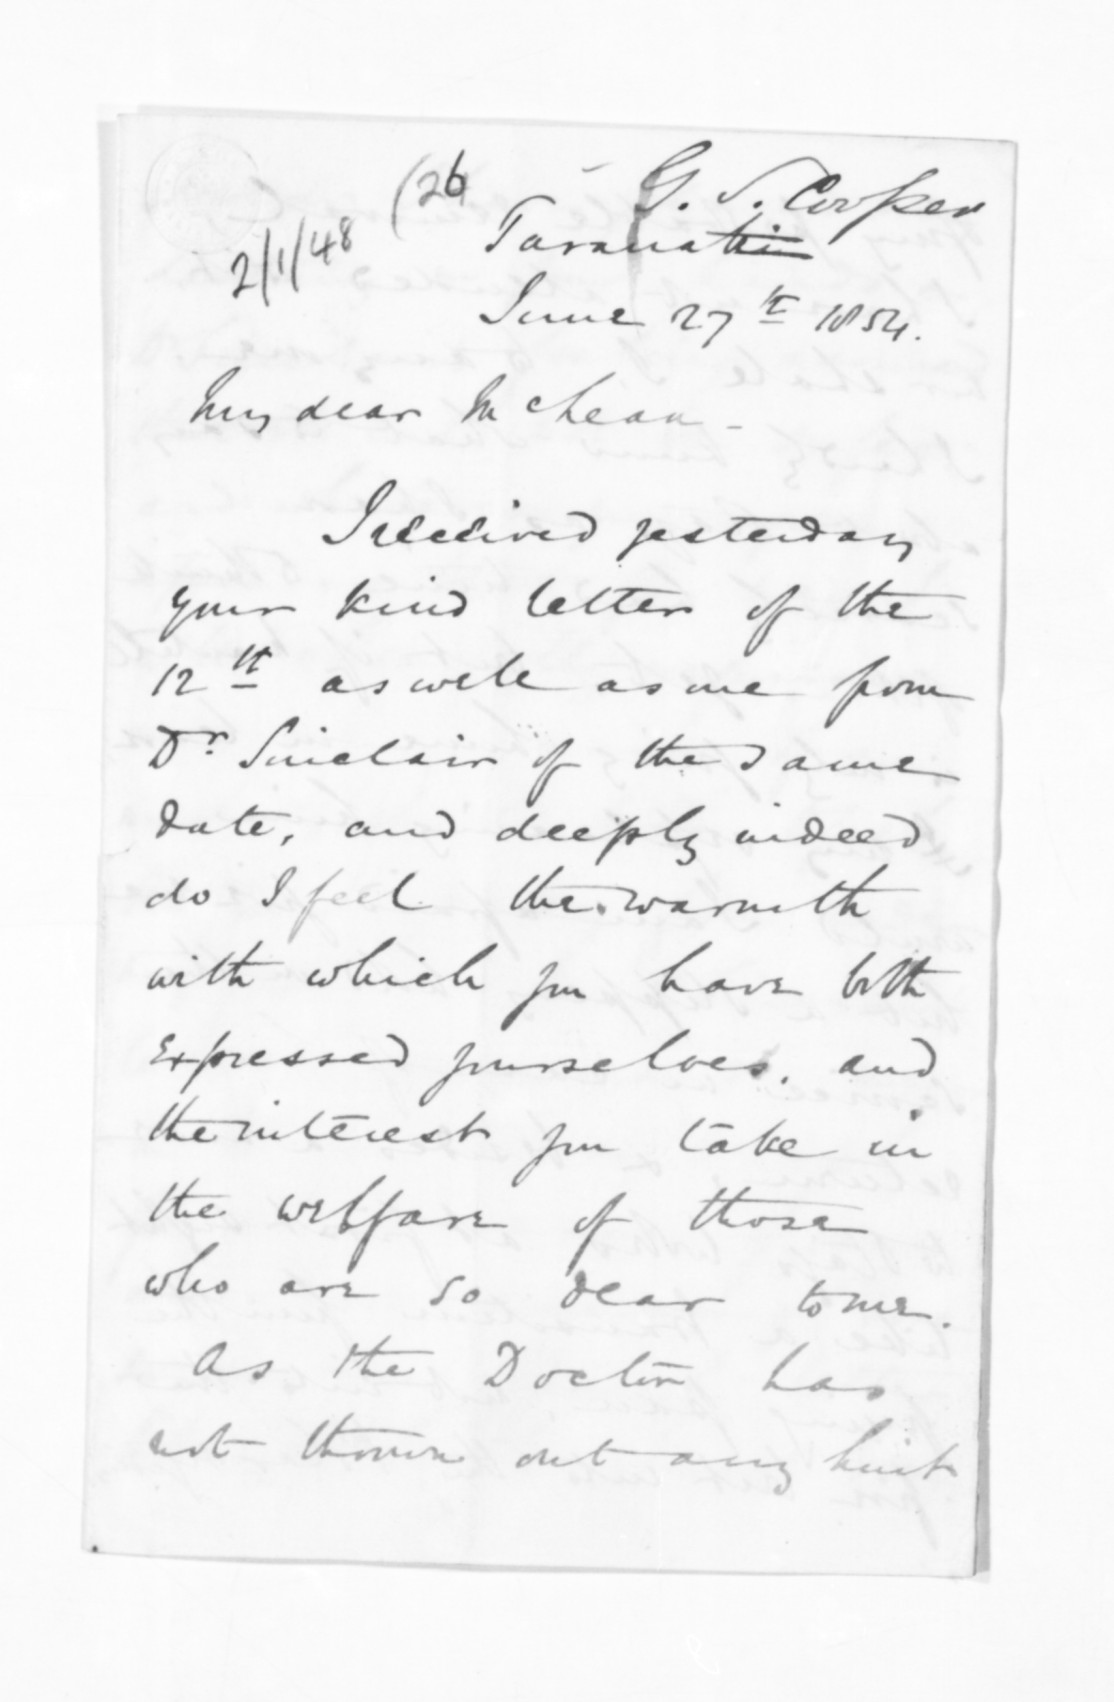 G. S. Cooper
(26
2/1/48
Taranaki
June 27th 1854.
My dear McLean -
I received yesterday
your kind letter of the
12th as well as one from
Dr. Sinclair of the same
date, and deeply indeed
do I feel the warmth
with which you have both
expressed yourselves, and
the interest you take in
the welfare of those
who are so dear to me.
As the Doctor has
not thrown out any hint